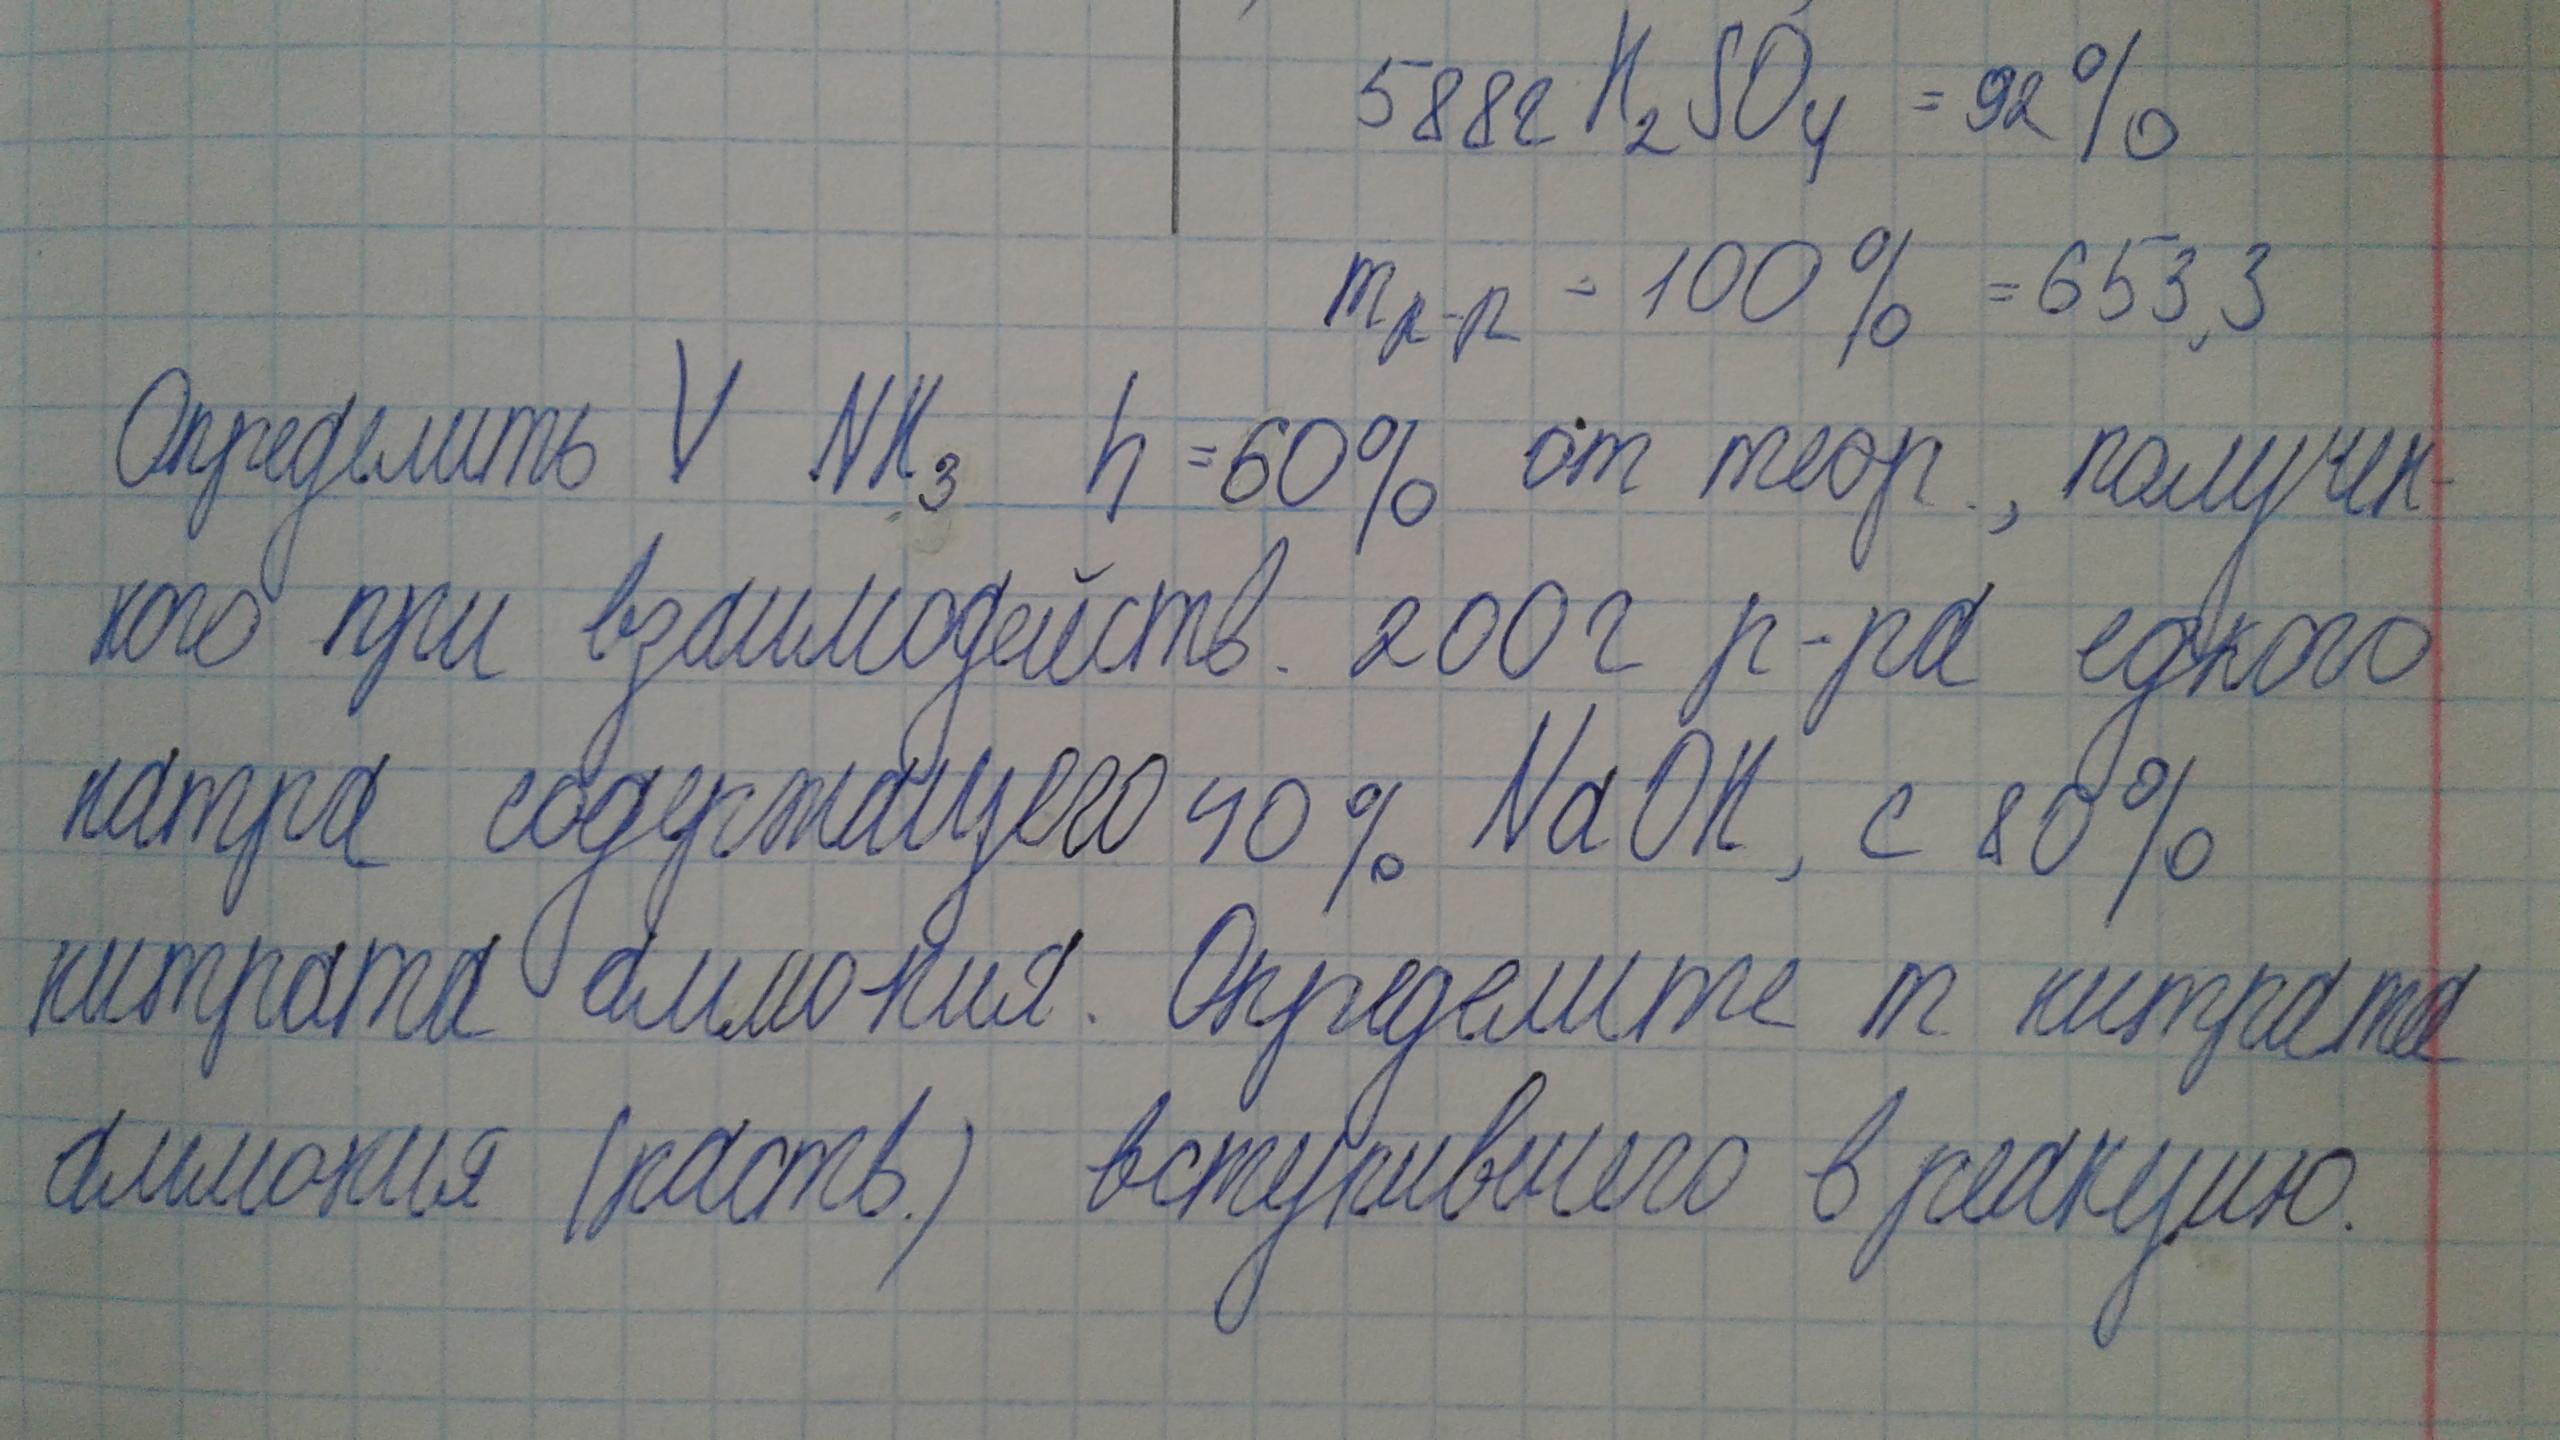 588г H₂SO₄ = 92%
m р-р - 100% = 653,3
Определить V NH₃ h = 60% от теор., получен-
ного при взаимодейств. 200г р-ра едкого
натра содержащего 40% NaOH, с 80%
нитрата аммония. Определите m нитрата
аммония (раств.) вступившего в реакцию.